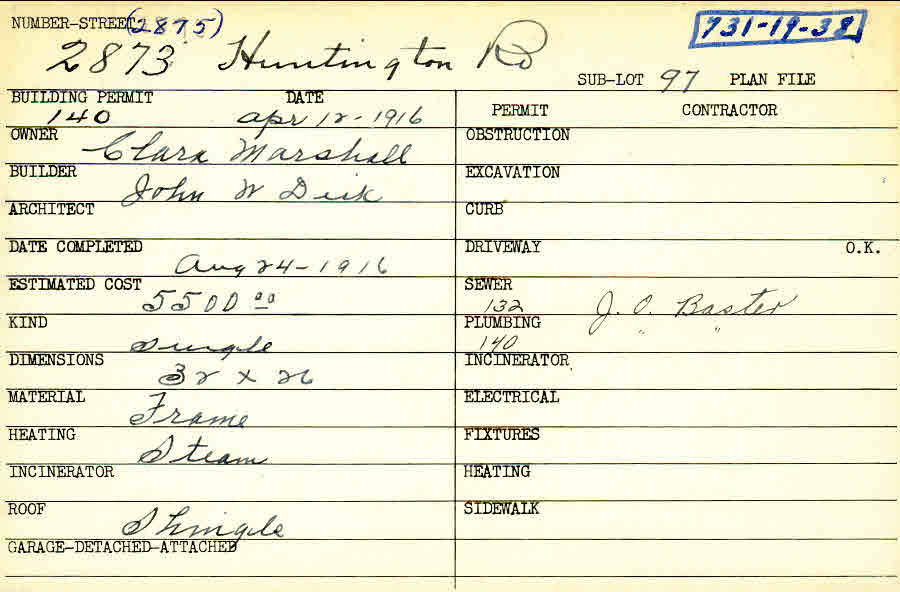 NUMBER-STREET (2875) 731-19-38
2873 Huntington Rd
SUB-LOT 97 PLAN FILE
BUILDING PERMIT DATE PERMIT CONTRACTOR
140 apr 12-1916
OWNER Clara Marshall OBSTRUCTION
BUILDER John W Dick EXCAVATION
ARCHITECT CURB
DATE COMPLETED Aug 24-1916 DRIVEWAY O.K.
ESTIMATED COST 5500 00 SEWER 132 J. O. Baster
KIND Single PLUMBING 140 " "
DIMENSIONS 32 x 26 INCINERATOR
MATERIAL Frame ELECTRICAL
HEATING Steam FIXTURES
INCINERATOR HEATING
ROOF Shingle SIDEWALK
GARAGE-DETACHED-ATTACHED